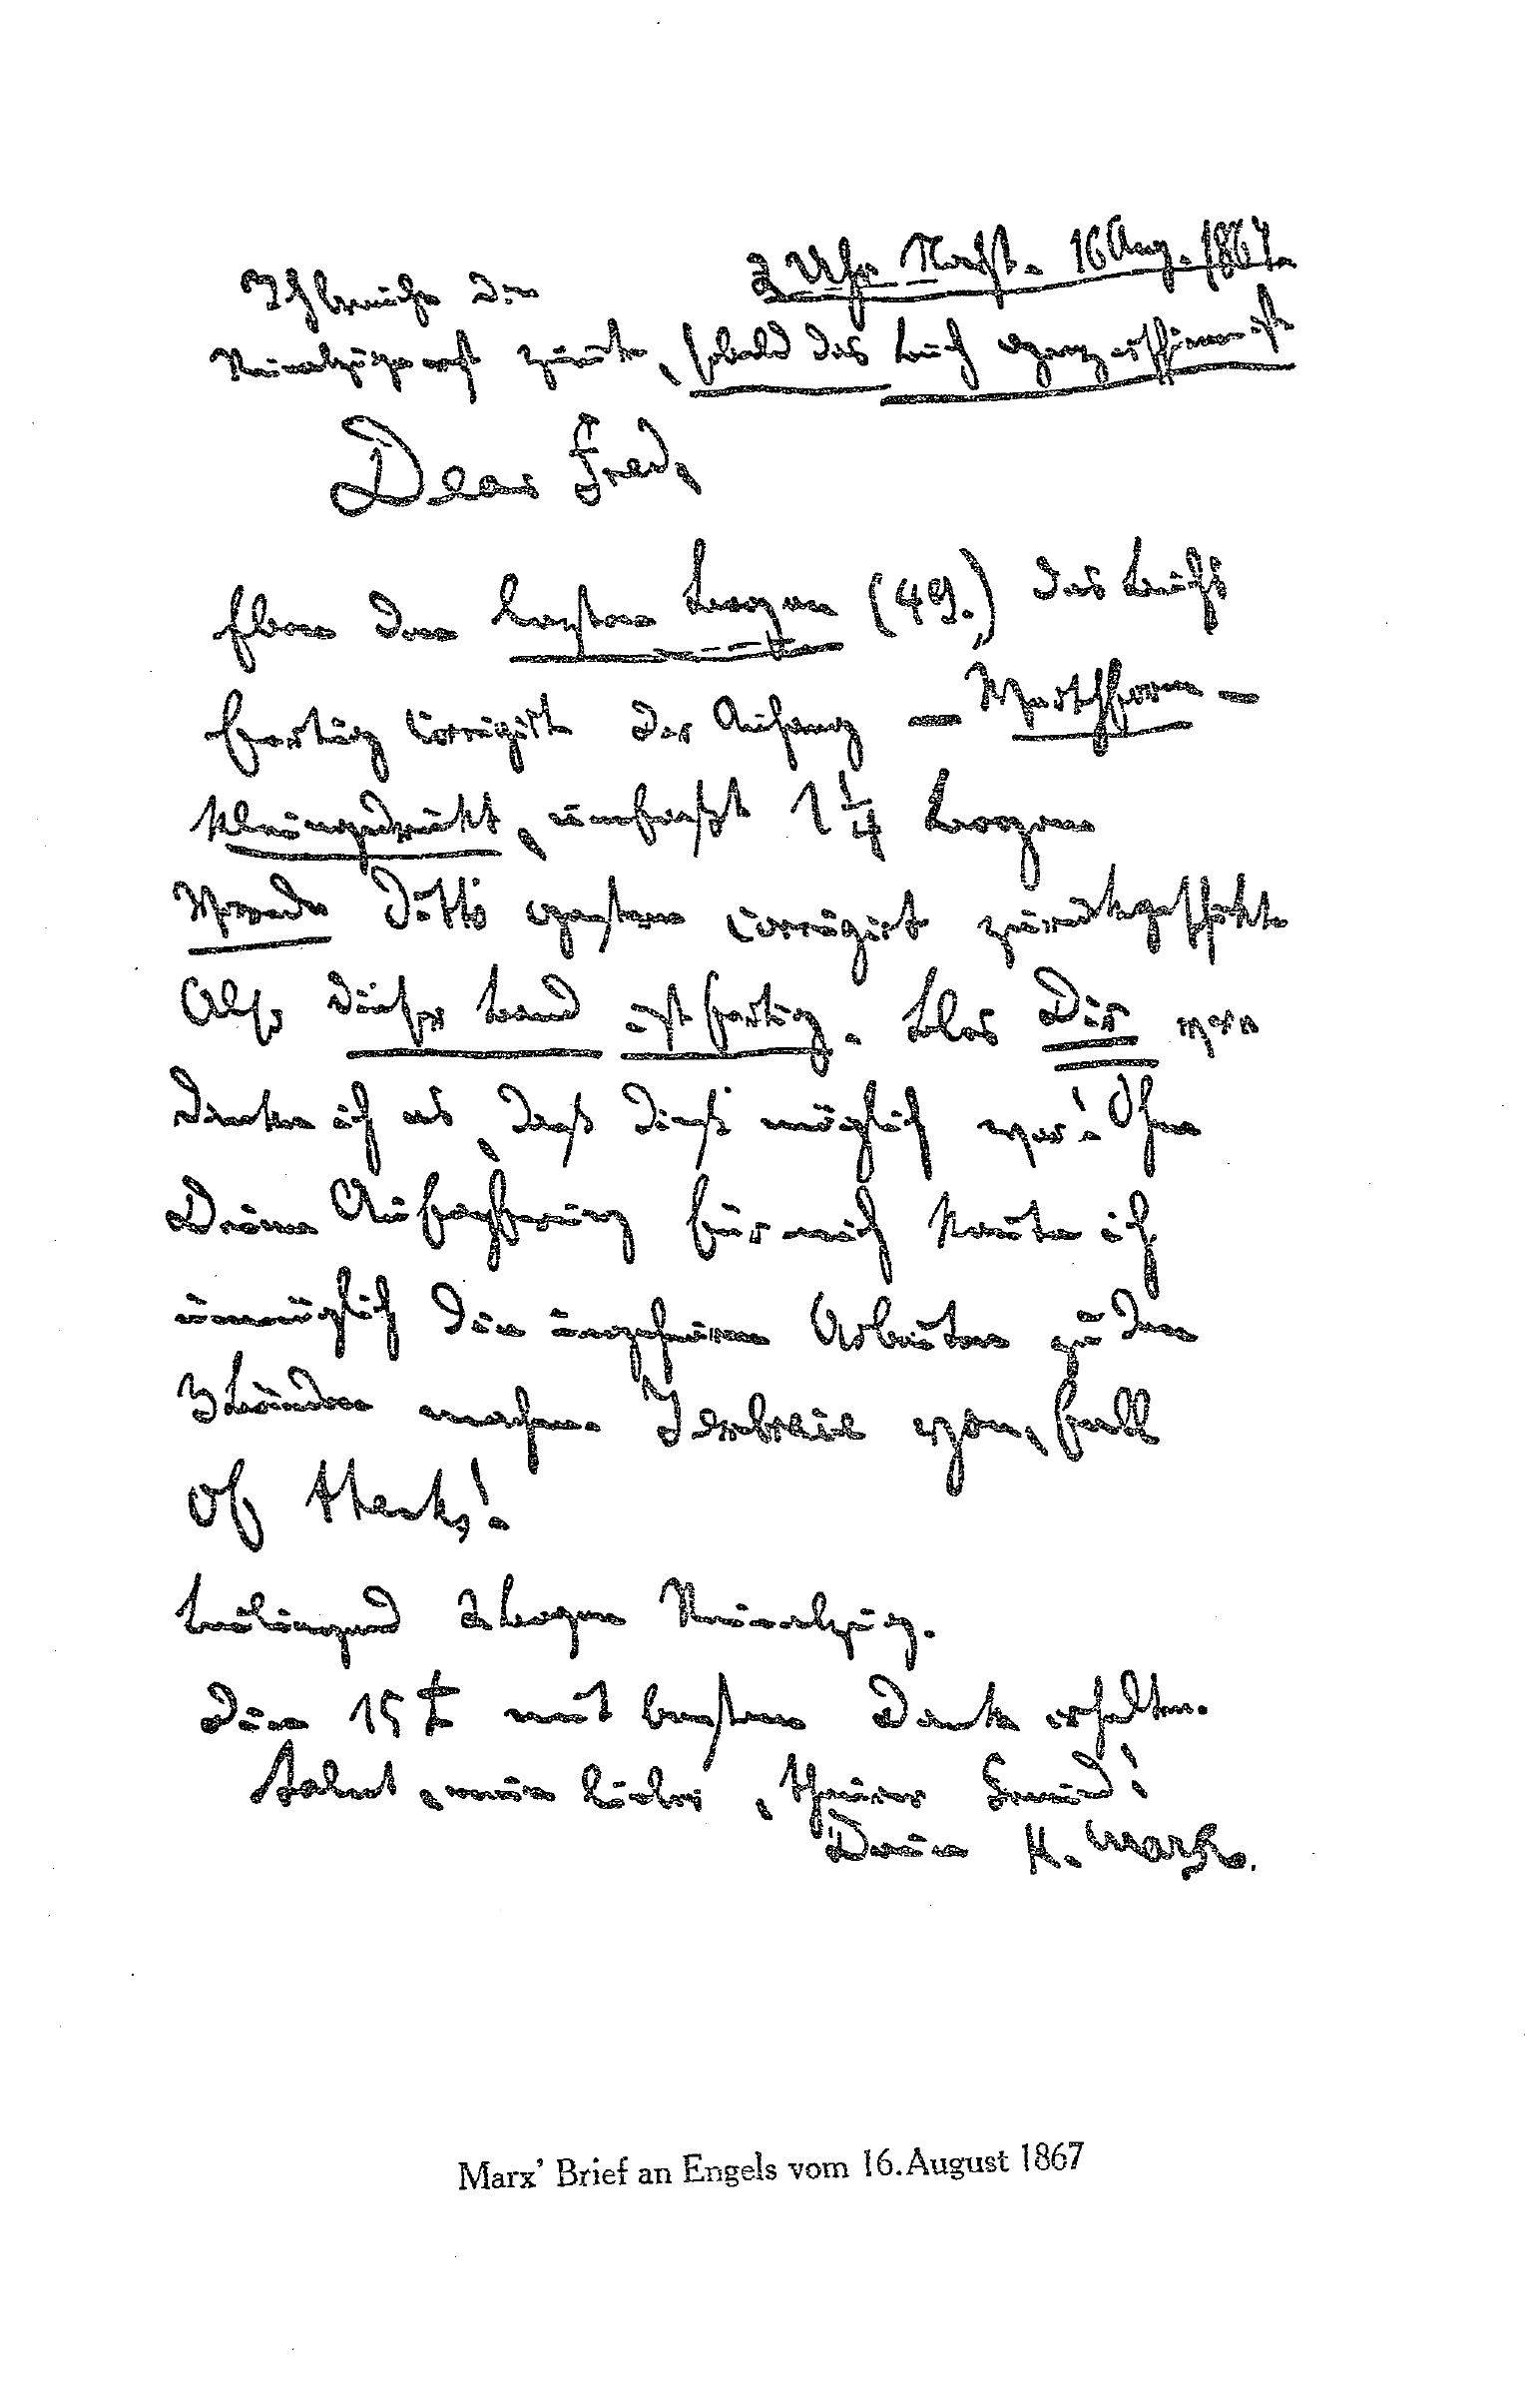 2 Uhr Nacht. 16 Aug. 1867.
Ich brauche die
Reinabzüge erst zurück, sobald das Buch ganz erschienen ist
Dear Fred,
Eben den letzten Bogen (49.) des Buchs
fertig corrigirt. Der Anhang – Werthform –
kleingedruckt, umfaßt 1 1/4 Bogen.
Vorrede ditto gestern corrigirt zurückgeschickt.
Also dieser Band ist fertig. Blos Dir ver
danke ich es, daß dieß möglich war! Ohne
Deine Aufopferung für mich konnte ich
unmöglich die ungeheuren Arbeiten zu den
3 Bänden machen. I embrace you, full
of thanks!
Beiliegend 2 Bogen Reinabzug.
Die 15 £ mit bestem Dank erhalten.
Salut, mein lieber, theurer Freund!
Dein K. Marx.
Marx' Brief an Engels vom 16. August 1867